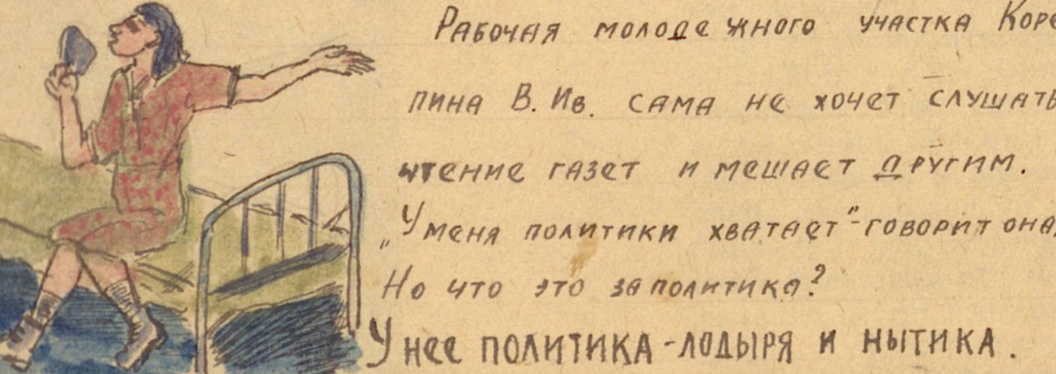 Рабочая молодежного участка Коре
пина В. Ив. сама не хочет слушать
чтение газет и мешает другим.
„У меня политики хватает"-говорит она,
Но что это за политика?
У нее политика-лодыря и нытика.